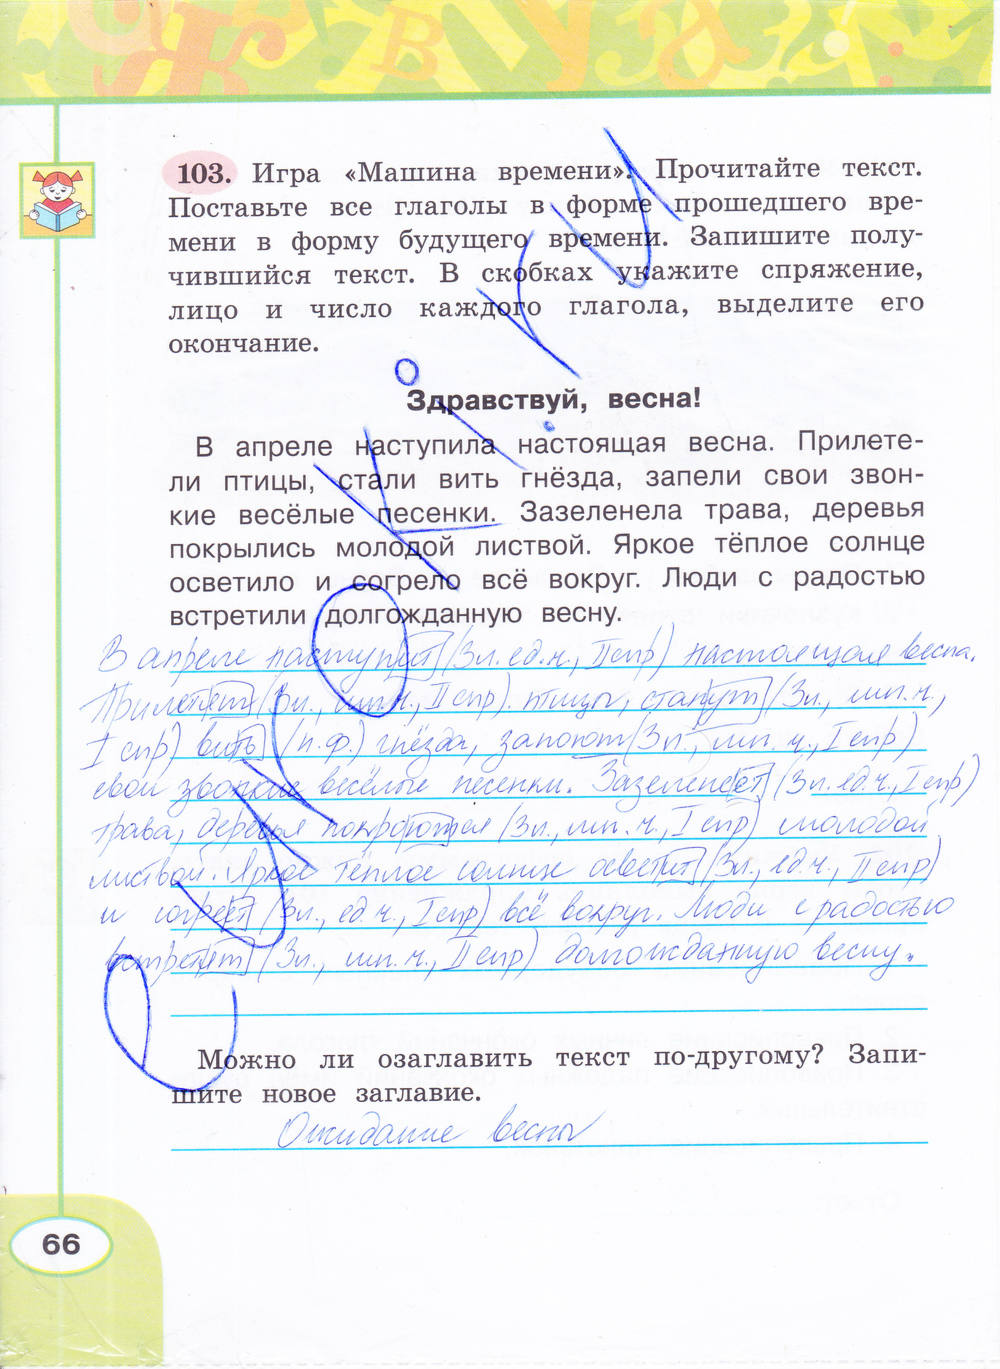 103. Игра «Машина времени». Прочитайте текст.
Поставьте все глаголы в форме прошедшего вре-
мени в форму будущего времени. Запишите полу-
чившийся текст. В скобках укажите спряжение,
лицо и число каждого глагола, выделите его
окончание.
Здравствуй, весна!
В апреле наступила настоящая весна. Прилете-
ли птицы, стали вить гнёзда, запели свои звон-
кие весёлые песенки. Зазеленела трава, деревья
покрылись молодой листвой. Яркое тёплое солнце
осветило и согрело всё вокруг. Люди с радостью
встретили долгожданную весну.
В апреле наступит (3л. ед.ч., II спр) настоящая весна.
Прилетят (3л., мн.ч., II спр). птицы, станут (3л., мн.ч.,
I спр) вить (н.ф.) гнёзда, запоют (3л., мн.ч., I спр)
свои звонкие весёлые песенки. Зазеленеет (3л. ед.ч., I спр)
трава, деревья покроются (3л., мн.ч., I спр) молодой
листвой. Яркое тёплое солнце осветит (3л., ед.ч., II спр)
и согреет (3л., ед.ч., I спр) всё вокруг. Люди с радостью
встретят (3л., мн.ч., II спр) долгожданную весну.
Можно ли озаглавить текст по-другому? Запи-
шите новое заглавие.
Ожидание весны
66